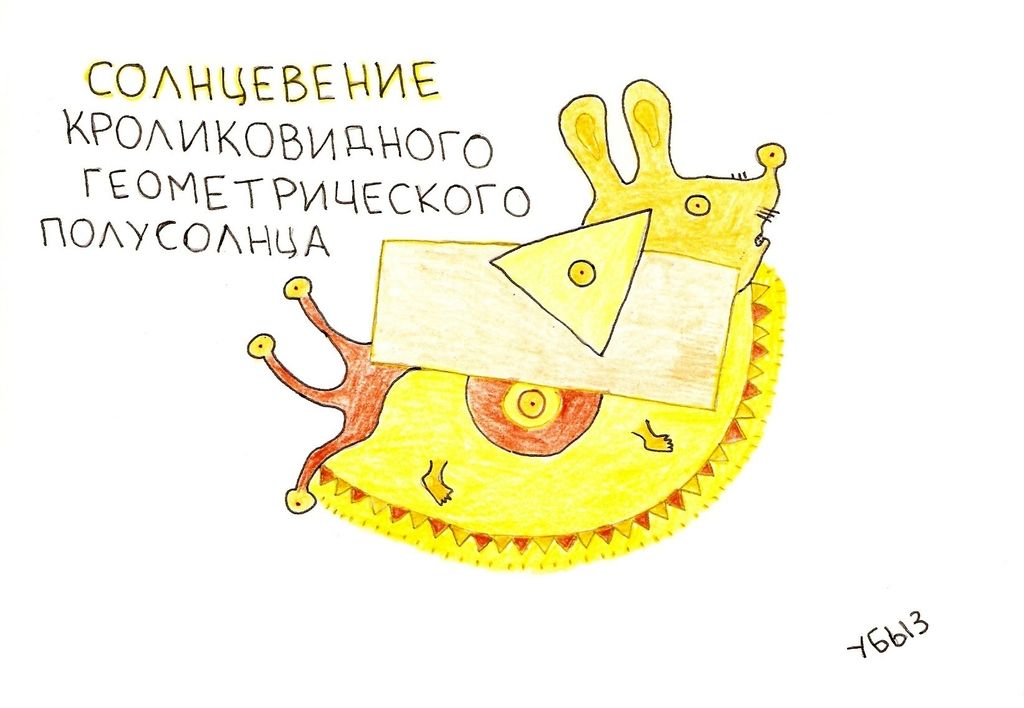 СОЛНЦЕВЕНИЕ
КРОЛИКОВИДНОГО
ГЕОМЕТРИЧЕСКОГО
ПОЛУСОЛНЦА
УБЫЗ